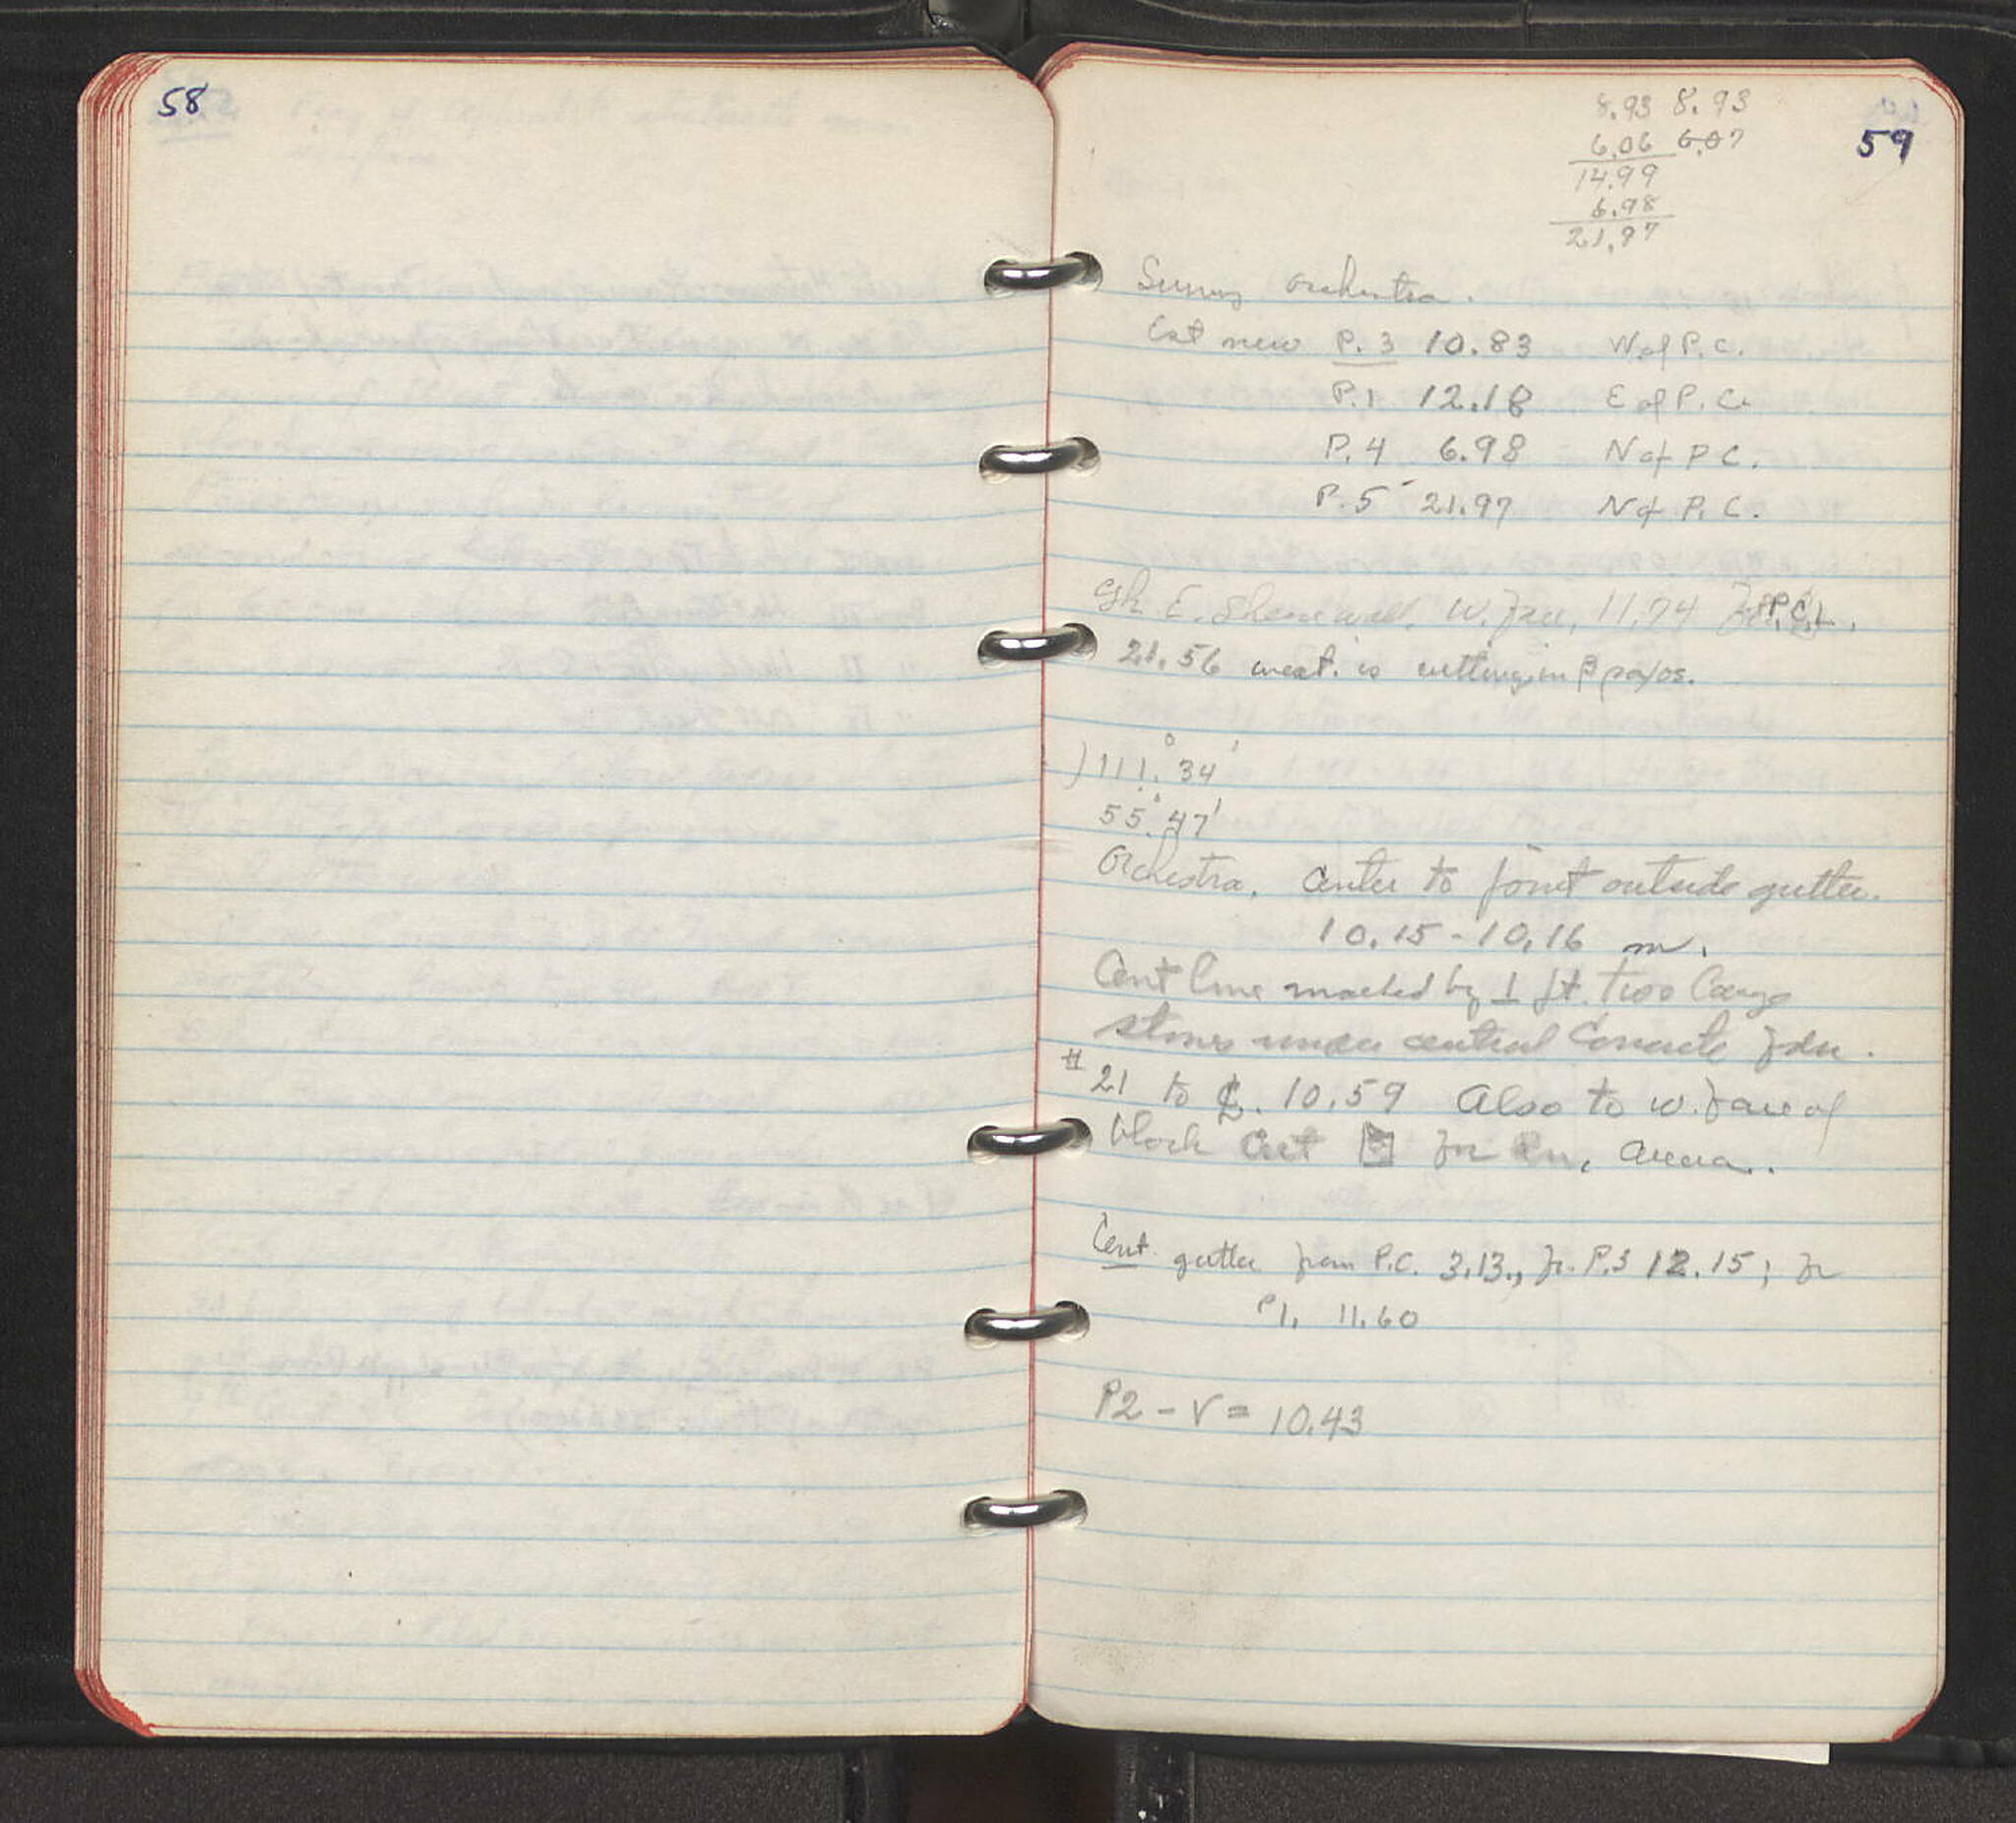 58
59
8.93 8.93
6.06 6.07
14.99
6.98
21.97
Survey Orchestra.
Est new P. 3 10.83 W. of P. C.
P. 1 12.18 E of P. C.
P. 4 6.98 N of P C.
P. 5 21.97 N of P. C.
Gk. E. wall, W. face, 11.74 P.C.
21.56 west. is cutting in parodos.
) 111.° 34'
55.° 47'
Orchestra. Center to joint outside gutter.
10.15 - 10.16 m.
Cent line marked by 1 ft. two large
stones under central Concrete fdn.
# 21 to ℄. 10.59 Also to w. face of
block cut for Rm. arena.
Cent. gutter from P.C. 3.13., fr. P.3 12.15; fr
P1. 11.60
P2 - V = 10.43